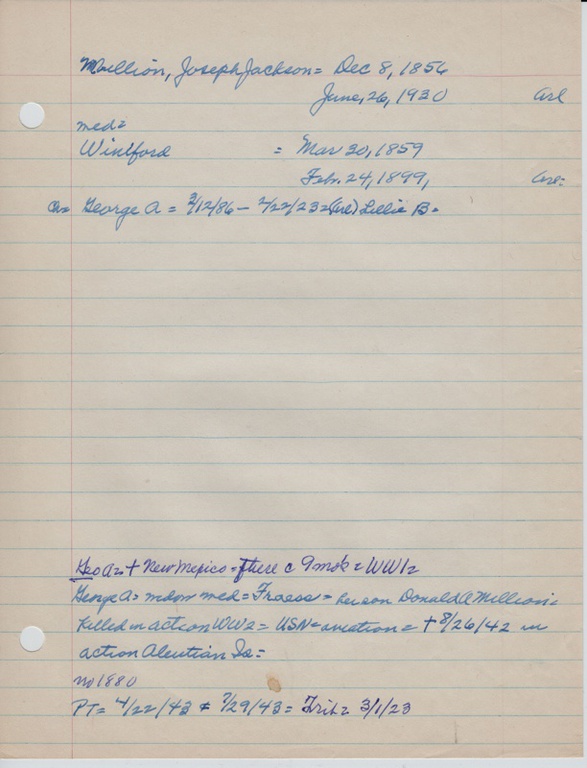 Million, Joseph Jackson = Dec 8, 1856
June, 26, 1930 arl
med =
Winlford = Mar 30, 1859
Feb. 24, 1899, are=
George A = 3/12/86 – 2/22/23 = (arl) Lillie B =
Geo A = + New Mexico = there c 9 mo's = WW1 =
George A = med = = her son Donald A Million =
Killed in action WW2 = USN = aviation = + 8/26/42 in
action Aleutian Is =
no 1880
PT = 4/22/43 & 7/29/43 = Trib = 3/1/23